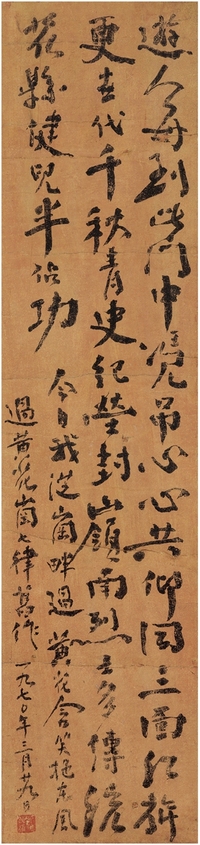 遊人每到此門中憑吊心心共仰同三面紅旂
更代千秋青史紀塋封嶺南烈士多傳統
花縣健兒半佔功
今日我從崗畔過黃花含笑東風
過黃花崗七律舊作一九七〇年三月廿九日